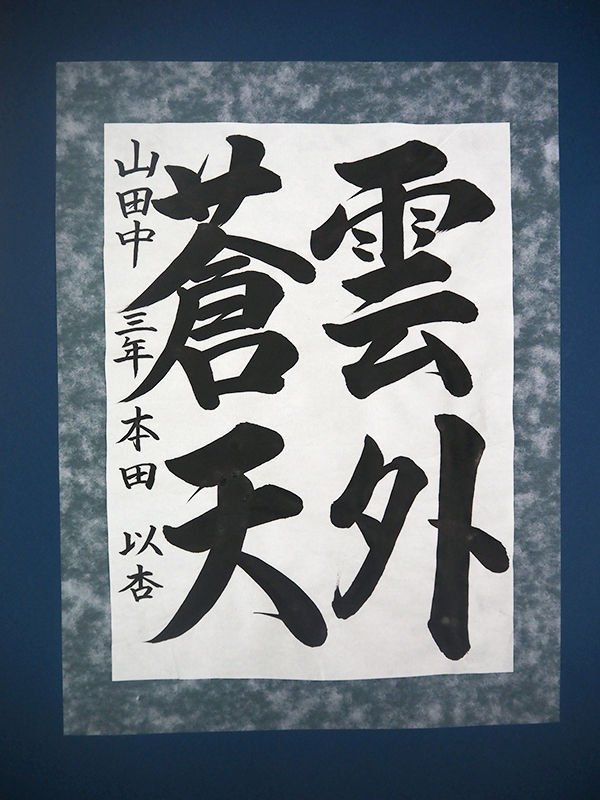 雲外
蒼天
山田中 三年 本田 以杏